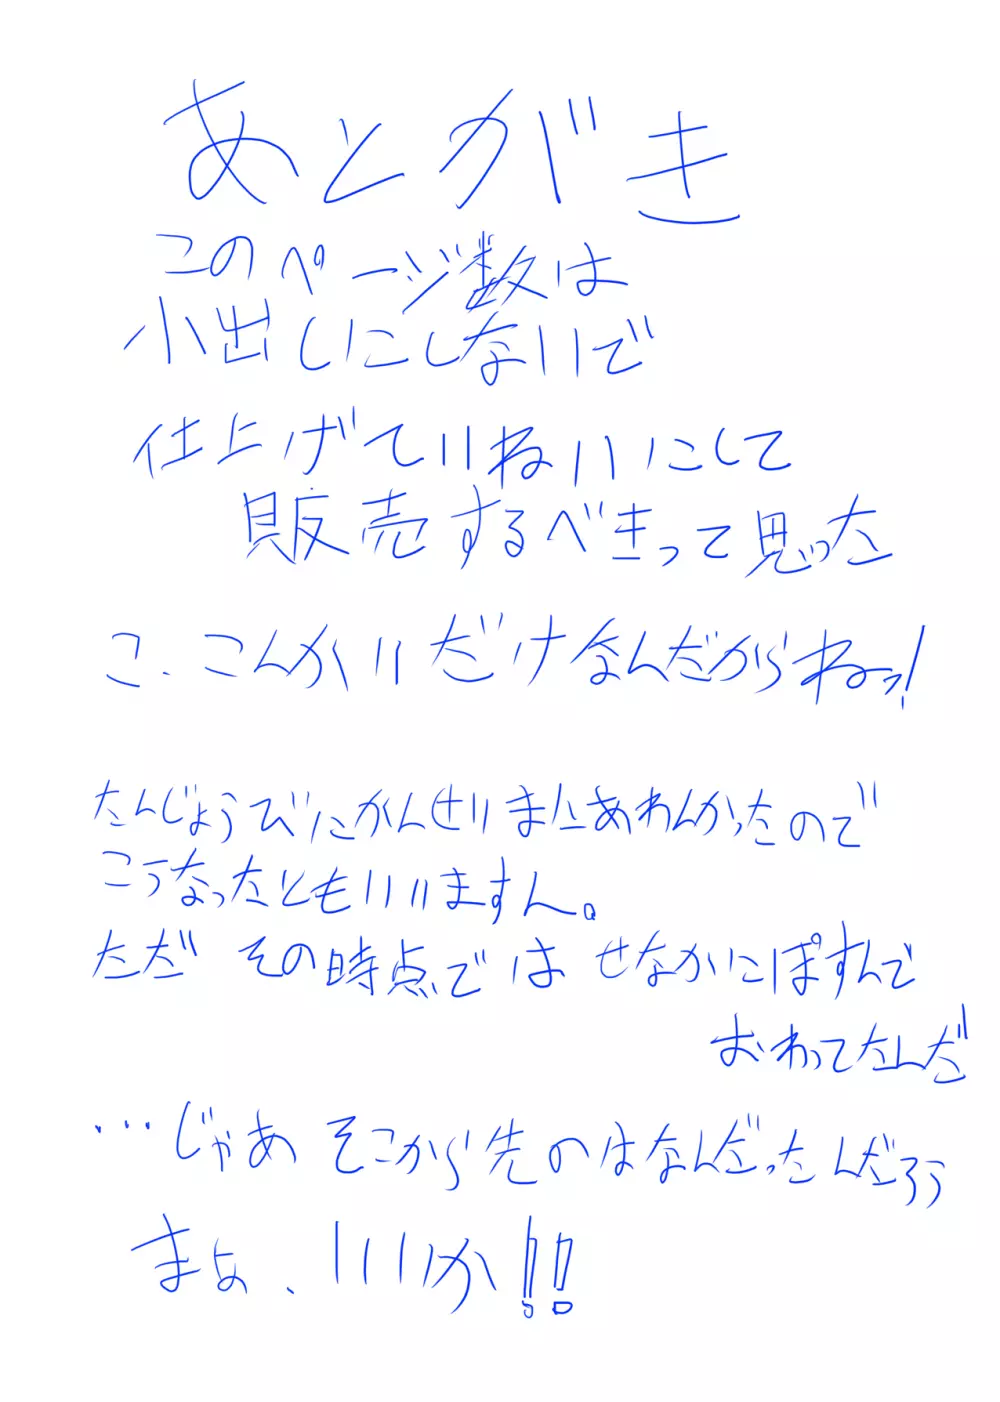 あとがき
このページ数は
小出しにしないで
仕上げていねいにして
販売するべきって思った
こ、こんかいだけなんだからねっ!
たんじょうびにかんせいまにあわんかったので
こうなったともいいますん。
ただ その時点では せなかにぽすんで
おわってたんだ
…じゃあ そこから先のはなんだったんだろう
まぁ、いいか!!